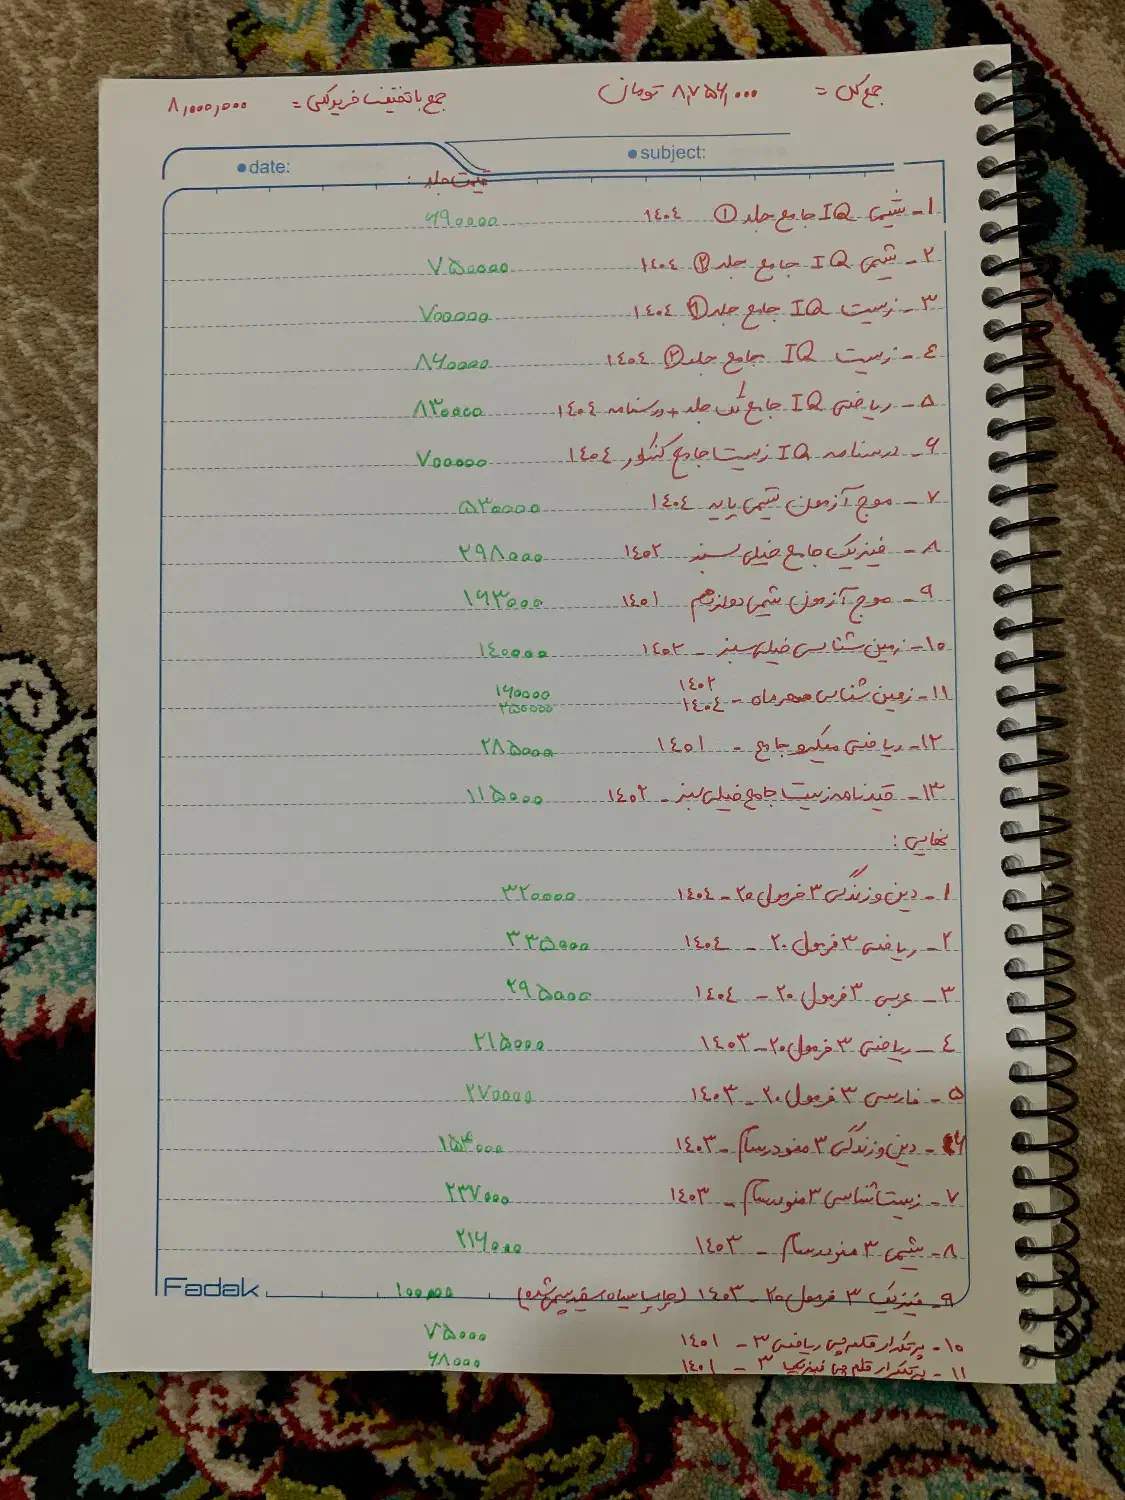 جمع کل = ۸,۷۵۶,۰۰۰ تومان جمع با تخفیف فرید کلی = ۸,۰۰۰,۰۰۰
subject: date:
قیمت جلد :
۱- شیمی IQ جامع جلد ① ۱۴۰۴ ۶۹۰۰۰۰
۲- شیمی IQ جامع جلد ② ۱۴۰۴ ۷۵۰۰۰۰
۳- زیست IQ جامع جلد ① ۱۴۰۴ ۷۰۰۰۰۰
۴- زیست IQ جامع جلد ② ۱۴۰۴ ۸۶۰۰۰۰
۵- ریاضی IQ جامع تک جلد + درسنامه ۱۴۰۴ ۸۳۰۰۰۰
۶- درسنامه IQ زیست جامع کنکور ۱۴۰۴ ۷۰۰۰۰۰
۷- موج آزمون شیمی پایه ۱۴۰۴ ۵۳۰۰۰۰
۸- فیزیک جامع خیلی سبز ۱۴۰۲ ۲۹۸۰۰۰
۹- موج آزمون شیمی دوازدهم ۱۴۰۱ ۱۶۳۰۰۰
۱۰- زمین شناسی خیلی سبز - ۱۴۰۲ ۱۴۰۰۰۰
۱۱- زمین شناسی مهر و ماه - ۱۴۰۲ ۱۶۰۰۰۰
۱۴۰۴ ۲۵۰۰۰۰
۱۲- ریاضی میکرو جامع - ۱۴۰۱ ۲۸۵۰۰۰
۱۳- قیدنامه زیست جامع خیلی سبز - ۱۴۰۲ ۱۱۵۰۰۰
نهایی :
۱- دین و زندگی ۳ فرمول ۲۰ - ۱۴۰۴ ۳۲۰۰۰۰
۲- ریاضی ۳ فرمول ۲۰ - ۱۴۰۴ ۳۳۵۰۰۰
۳- عربی ۳ فرمول ۲۰ - ۱۴۰۴ ۲۹۵۰۰۰
۴- ریاضی ۳ فرمول ۲۰ - ۱۴۰۳ ۲۱۵۰۰۰
۵- فارسی ۳ فرمول ۲۰ - ۱۴۰۳ ۲۷۰۰۰۰
۶- دین و زندگی ۳ منو درسام - ۱۴۰۳ ۱۵۴۰۰۰
۷- زیست شناسی ۳ منو درسام - ۱۴۰۳ ۲۳۷۰۰۰
۸- شیمی ۳ منو درسام - ۱۴۰۳ ۲۱۶۰۰۰
۹- فیزیک ۳ فرمول ۲۰ - ۱۴۰۳ (چاپ سیاه سفید سیمی شده) ۱۰۰۰۰۰
Fadak
۱۰- پرتکرار قلم چی ریاضی ۳ - ۱۴۰۱ ۷۵۰۰۰
۱۱- پرتکرار قلم چی فیزیک ۳ - ۱۴۰۱ ۶۸۰۰۰